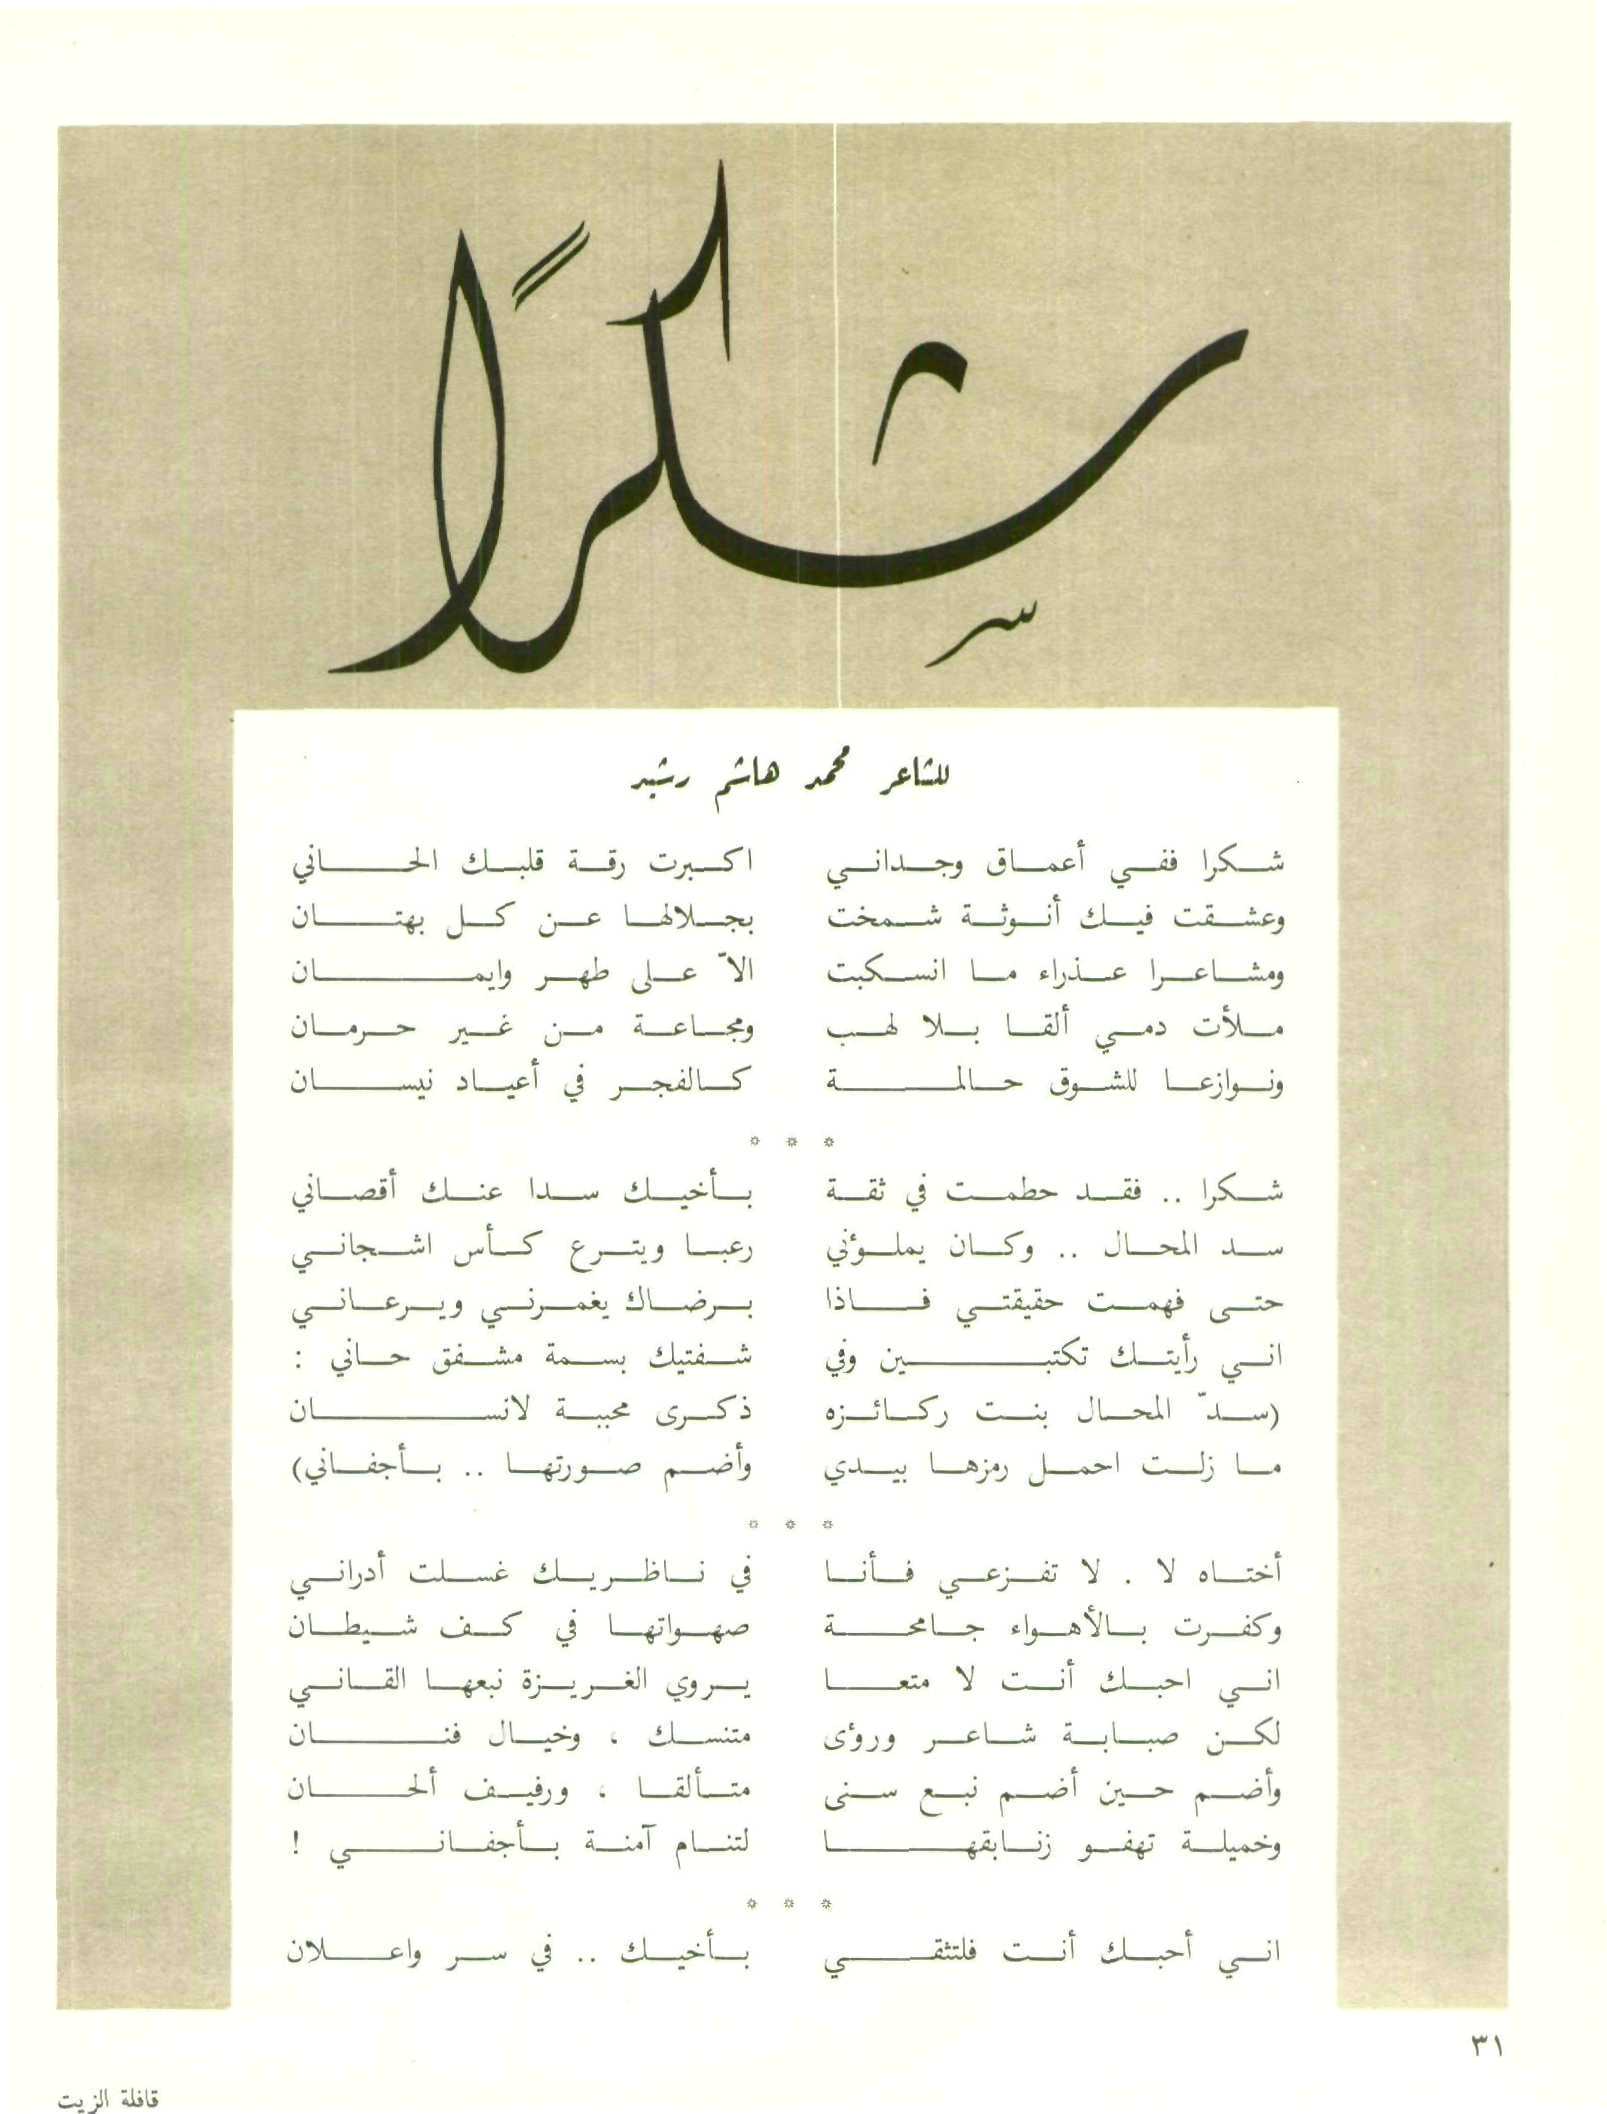 شكرًا
للشاعر محمد هاشم رشيد
شكرا ففي أعماق وجداني اكبرت رقة قلبك الحاني
وعشقت فيك أنوثة شمخت بجلالها عن كل بهتان
ومشاعرا عذراء ما انسكبت الاّ على طهر وايمان
ملأت دمي ألقا بلا لهب ومجاعة من غير حرمان
ونوازعا للشوق حالمة كالفجر في أعياد نيسان
* * *
شكرا .. فقد حطمت في ثقة بأخيك سدا عنك أقصاني
سد المحال .. وكان يملؤني رعبا ويترع كأس اشجاني
حتى فهمت حقيقتي فاذا برضاك يغمرني ويرعاني
اني رأيتك تكتبين وفي شفتيك بسمة مشفق حاني :
(سدّ المحال بنت ركائزه ذكرى محببة لانسان
ما زلت احمل رمزها بيدي وأضم صورتها .. بأجفاني)
* * *
أختاه لا . لا تفزعي فأنا في ناظريك غسلت أدراني
وكفرت بالأهواء جامحة صهواتها في كف شيطان
اني احبك أنت لا متعا يروي الغريزة نبعها القاني
لكن صبابة شاعر ورؤى متنسك ، وخيال فنان
وأضم حين أضم نبع سنى متألقا ، ورفيف ألحان
وخميلة تهفو زنابقها لتنام آمنة بأجفاني !
* * *
اني أحبك أنت فلتثقي بأخيك .. في سر واعلان
٣١
قافلة الزيت